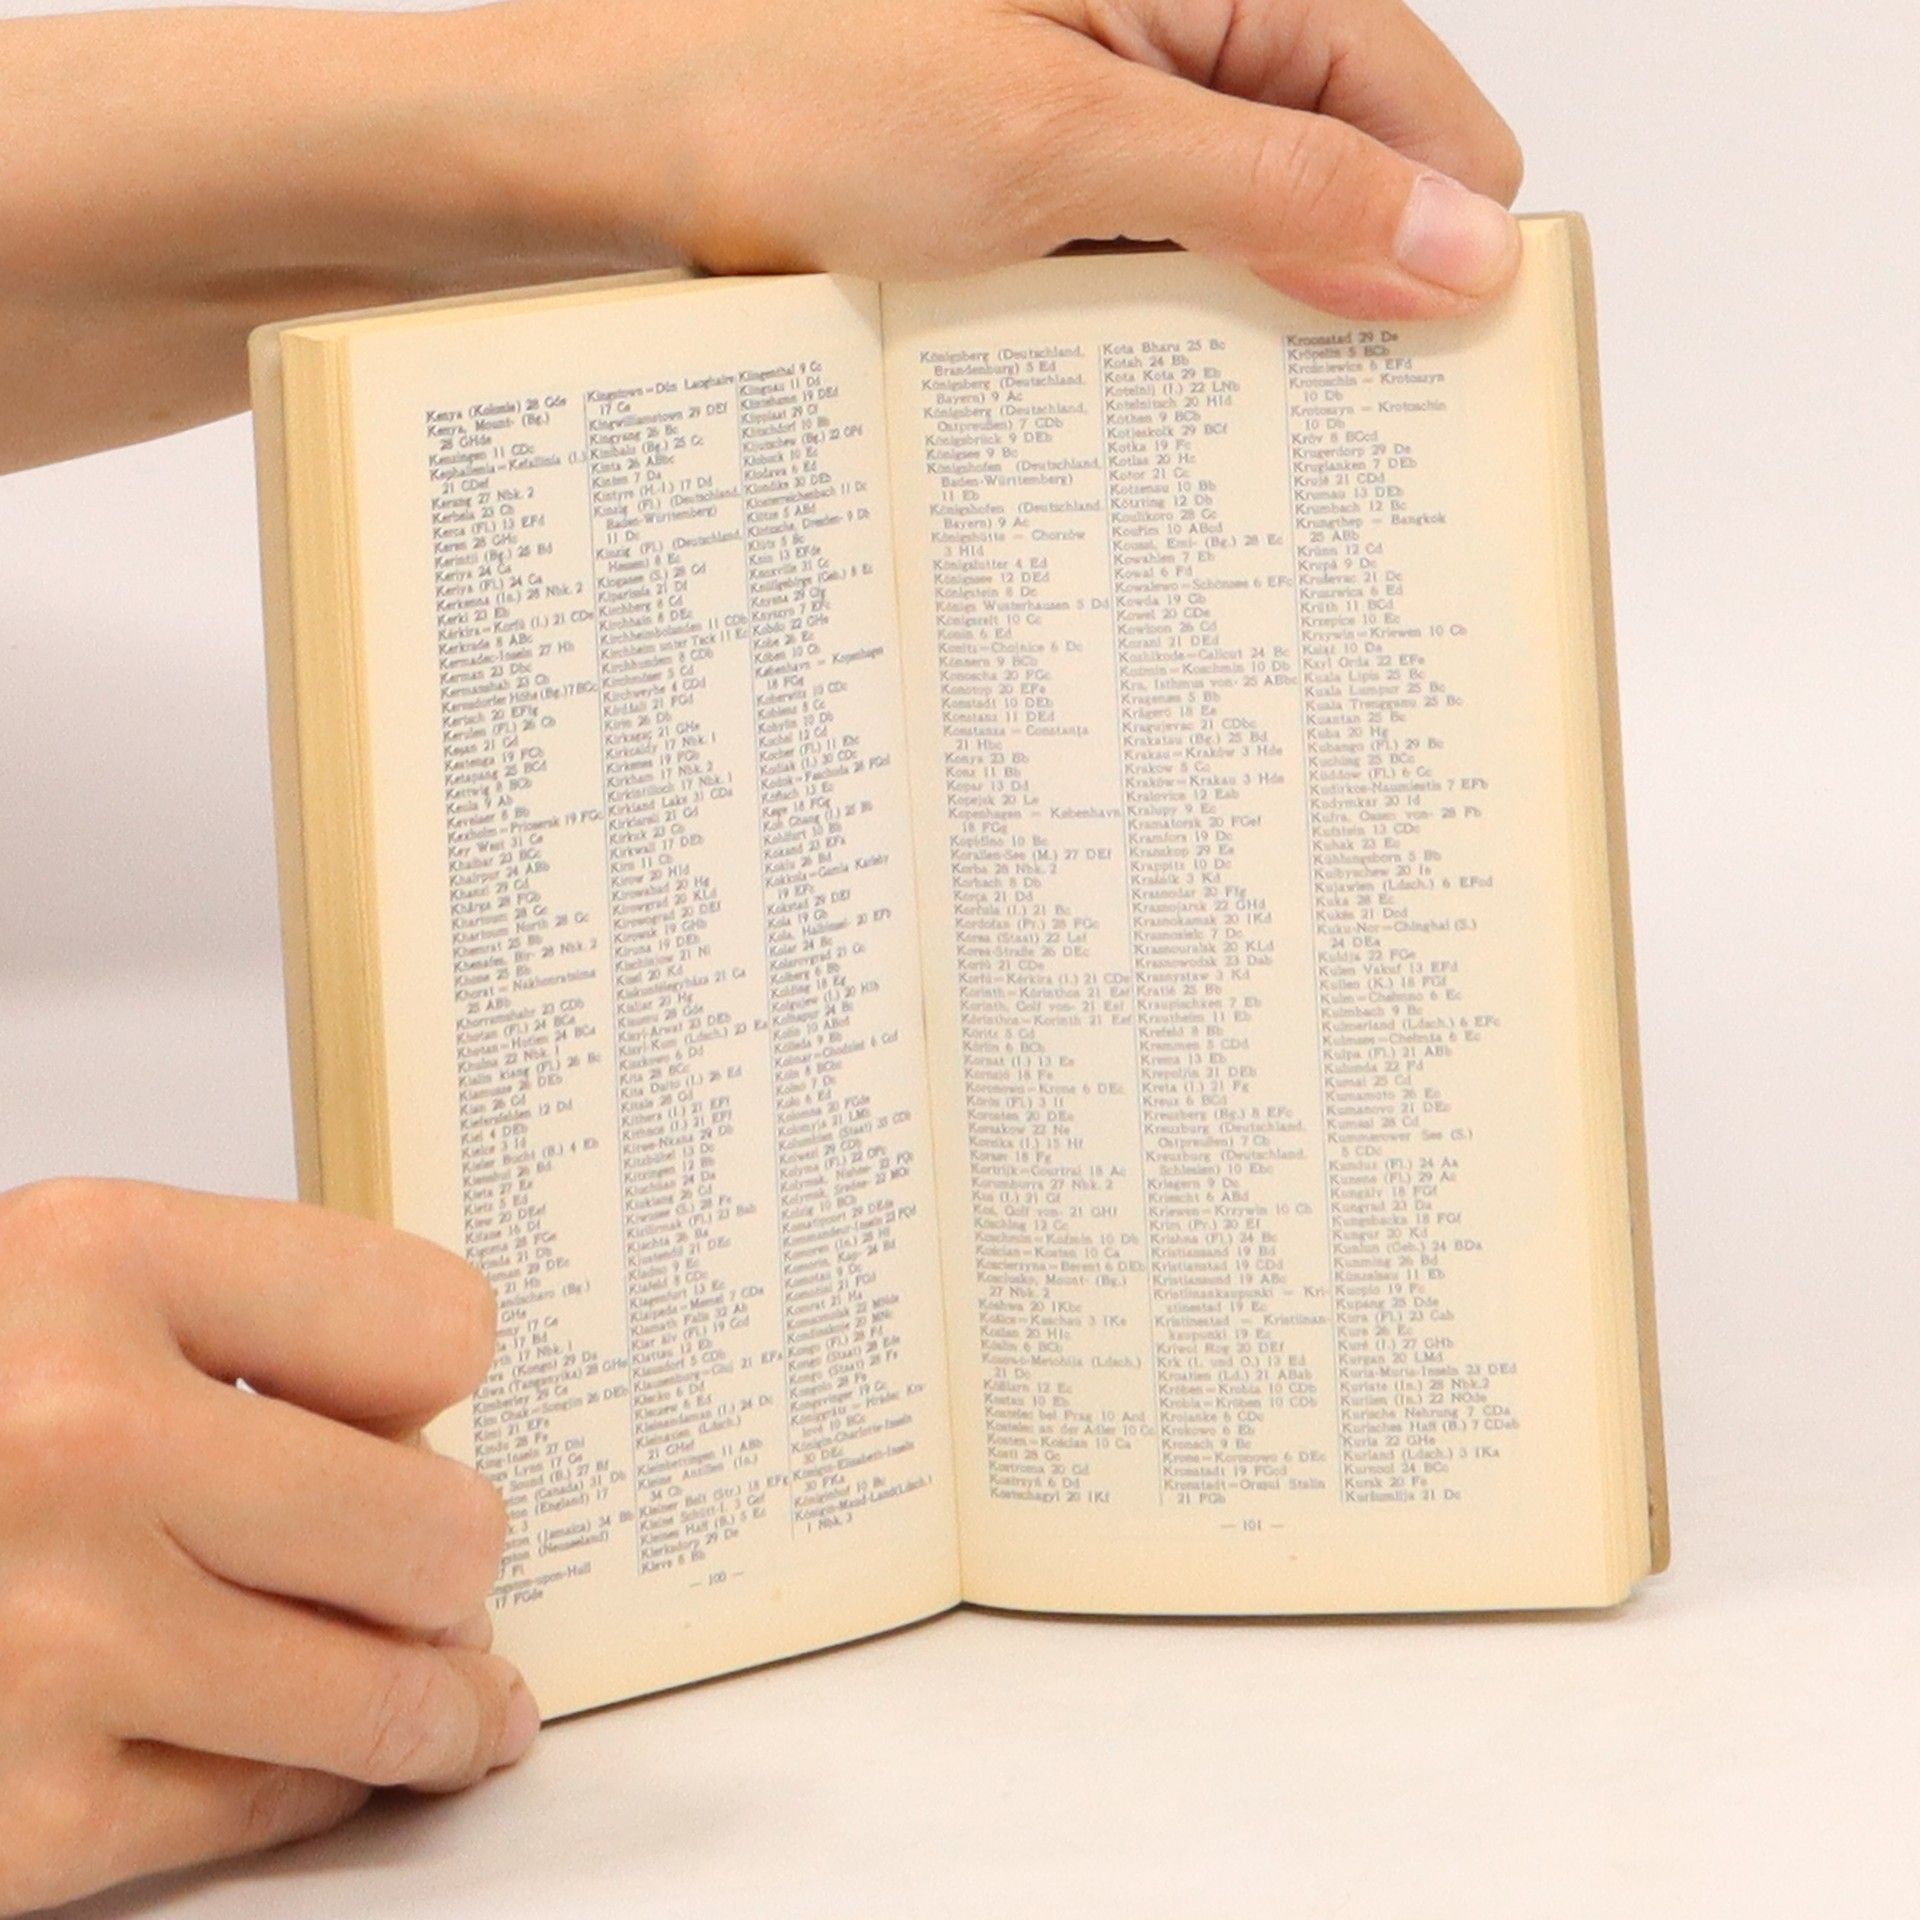 Kenya (Kolonie) 28 Gde
Kenya, Mount- (Bg.)
28 GHde
Kenzingen 11 CDc
Kephallenia = Kefallinia (I.)
21 CDef
Kerang 27 Nbk. 2
Kerbela 23 Cb
Kerca (Fl.) 13 EFd
Keren 28 GHc
Kerintji (Bg.) 25 Bd
Keriya 24 Ca
Keriya (Fl.) 24 Ca
Kerkenna (In.) 28 Nbk. 2
Kerki 23 Eb
Kérkira = Korfù (I.) 21 CDe
Kerkrade 8 ABc
Kermadec-Inseln 27 Hh
Kerman 23 Dbc
Kermanshah 23 Cb
Kertsch 20 EFfg
Kerulen (Fl.) 26 Cb
Keşan 21 Gd
Kestenga 19 FCb
Ketapang 25 BCd
Kettwig 8 BCb
Keula 9 Ab
Kevelaer 8 Bb
Kexholm = Priosersk 19 FGc
Key West 31 Ce
Khaibar 23 BCc
Khairpur 24 ABb
Khanzi 29 Cd
Khârga 28 FGb
Khartoum 28 Gc
Khartoum North 28 Gc
Khemrat 25 Bb
Khenafes, Bir- 28 Nbk. 2
Khone 25 Bb
Khorat = Nakhonratsima
25 ABb
Khorramshahr 23 CDb
Khotan (Fl.) 24 BCa
Khotan = Hotien 24 BCa
Khulna 22 Nbk. 1
Kialin kiang (Fl.) 26 Bc
Kiamusze 26 DEb
Kian 26 Cd
Kiefersfelden 12 Dd
Kiel 4 DEb
Kielce 3 Id
Kieler Bucht (B.) 4 Eb
Kienshui 26 Bd
Kieta 27 Ee
Kietz 5 Ed
Kiew 20 DEef
Kifane 16 Df
Kigoma 28 FGe
17 Nbk. 1
Kilwa (Tanganyika) 28 GHe
Kimberley 29 Ce
Kim Chak = Songjin 26 DEb
Kimi 21 EFe
Kindu 28 Fe
King-Inseln 27 Dhi
Lynn 17 Ge
Sound (B.) 27 Bf
(Canada) 31 Db
(England) 17
(Jamaica) 34 Bb
(Neuseeland)
17 FGde
Kingstown = Dún Laoghaire
17 Ce
Kingwilliamstown 29 DEf
Kingyang 26 Bc
Kinibalu (Bg.) 25 Cc
Kinta 26 ABbc
Kinten 7 Da
Kintyre (H.-I.) 17 Dd
Kinzig (Fl.) (Deutschland,
Baden-Württemberg)
11 Dc
Kinzig (Fl.) (Deutschland,
Hessen) 8 Ec
Kiogasee (S.) 28 Gd
Kiparissía 21 Df
Kirchberg 8 Cd
Kirchhain 8 DEc
Kirchheimbolanden 11 CDb
Kirchheim unter Teck 11 Ec
Kirchhunden 8 CDb
Kirchmöser 5 Cd
Kirchweyhe 4 CDd
Kirdžali 21 FGd
Kirin 26 Db
Kirkagaç 21 GHe
Kirkcaldy 17 Nbk. 1
Kirkenes 19 FGb
Kirkham 17 Nbk. 2
Kirkintilloch 17 Nbk. 1
Kirkland Lake 31 CDa
Kirklareli 21 Gd
Kirkuk 23 Cb
Kirkwall 17 DEb
Kirn 11 Cb
Kirow 20 HId
Kirowabad 20 Hg
Kirowgrad 20 KLd
Kirowograd 20 DEf
Kirowsk 19 GHb
Kiruna 19 DEb
Kischinjow 21 Ni
Kisel 20 Kd
Kiskunfélegyháza 21 Ca
Kisljar 20 Hg
Kisumu 28 Gde
Kisyl-Arwat 23 DEb
Kisyl-Kum (Ldsch.) 23 Ea
Kiszkowo 6 Dd
Kita 28 BCc
Kita Daito (I.) 26 Ed
Kitale 28 Gd
Kithera (I.) 21 EFf
Kithnos (I.) 21 EFf
Kitwe-Nkana 29 Db
Kitzbühel 13 Dc
Kitzingen 12 Bb
Kiuchüan 24 Da
Kiukiang 26 Cd
Kiwusee (S.) 28 Fe
Kizilirmak (Fl.) 23 Bab
Kjachta 26 Ba
Kjustendil 21 DEc
Kladno 9 Ec
Klafeld 8 CDc
Klagenfurt 13 Ec
Klaipeda = Memel 7 CDa
Klamath Falls 32 Ab
Klar älv (Fl.) 19 Ccd
Klattau 12 Eb
Klausdorf 5 CDb
Klausenburg = Cluj 21 EFa
Klecko 6 Dd
Kleczew 6 Ed
Kleinandaman (I.) 24 Dc
Kleinasien (Ldsch.)
21 GHef
Kleinbettingen 11 ABb
Kleine Antillen (In.)
34 Cb
Kleiner Belt (Str.) 18 EFg
Kleine Schütt-I. 3 Gef
Kleines Haff (B.) 5 Ec
Klerksdorp 29 De
Kleve 8 Bb
Klingenthal 9 Cc
Klingnau 11 Dd
Klintehamn 19 DEd
Klipplaat 29 Cf
Klitschdorf 10 Bb
Kljutschew (Bg.) 22 OPd
Klobuck 10 Ec
Klodawa 6 Ed
Klondike 30 DEb
Klosterreichenbach 11 Dc
Klötze 5 ABd
Klotzsche, Dresden- 9 Db
Klütz 5 Bc
Knin 13 EFde
Knoxville 31 Cc
Knüllgebirge (Geb.) 8 Ec
Knysna 29 Cfg
Knyszyn 7 EFc
Kobdo 22 GHe
Kobe 26 Ec
Köben 10 Cb
København = Kopenhagen
18 FGg
Koberwitz 10 CDc
Koblenz 8 Cc
Kobylin 10 Db
Kochel 12 Cd
Kocher (Fl.) 11 Ebc
Kodiak (I.) 30 CDc
Kodok = Faschoda 28 FGd
Köflach 13 Ec
Køge 18 FGg
Koh Chang (I.) 25 Bb
Kohlfurt 10 Bb
Kokand 23 EFa
Kokiu 26 Bd
Kokkola = Gamla Karleby
19 EFc
Kokstad 29 DEf
Kola 19 Gb
Kola, Halbinsel- 20 EFb
Kolar 24 Bc
Kolarovgrad 21 Gc
Kolberg 6 Bb
Kolding 18 Eg
Kolgujew (I.) 20 HIb
Kolhapur 24 Bc
Kolin 10 ABcd
Kölleda 9 Bb
Kolmar = Chodzież 6 Ccd
Köln 8 BCbc
Kolno 7 Dc
Kolo 6 Ed
Kolomna 20 FGde
Kolomyja 21 LMh
Kolumbien (Staat) 35 CDb
Kolwezi 29 CDb
Kolyma (Fl.) 22 OPc
Kolzig 10 BCb
Komatipoort 29 DEde
Kommandeur-Inseln 22 PQd
Komoren (In.) 28 Hf
Komorin, Kap- 24 Bd
Komotau 9 Dc
Komotini 21 FGd
Komrat 21 Ha
Komsomolsk 22 MNde
Kongo (Fl.) 28 Ed
Kongo (Staat) 28 Ede
Kongo (Staat) 28 Fe
Kongolo 28 Fe
Kongsvinger 19 Cc
Königgrätz = Hradec Krá-
lové 10 BCc
Königin-Charlotte-Inseln
30 DEc
Königin-Elisabeth-Inseln
30 FKa
Königinhof 10 Bc
Königin-Maud-Land (Ldsch.)
1 Nbk. 3
— 100 —
Königsberg (Deutschland,
Brandenburg) 5 Ed
Königsberg (Deutschland,
Bayern) 9 Ac
Königsberg (Deutschland,
Ostpreußen) 7 CDb
Königsbrück 9 DEb
Königsee 9 Bc
Königshofen (Deutschland,
Baden-Württemberg)
11 Eb
Königshofen (Deutschland,
Bayern) 9 Ac
Königshütte = Chorzów
3 HId
Königslutter 4 Ed
Königssee 12 DEd
Königstein 8 Dc
Königs Wusterhausen 5 Dd
Königszelt 10 Cc
Konin 6 Ed
Konitz = Chojnice 6 Dc
Könnern 9 BCb
Konoscha 20 FGc
Konotop 20 EFe
Konstadt 10 DEb
Konstanz 11 DEd
Konstanza = Constanța
21 Hbc
Konya 23 Bb
Konz 11 Bb
Kopar 13 Dd
Kopejsk 20 Le
Kopenhagen = København
18 FGg
Kopidlno 10 Bc
Korallen-See (M.) 27 DEf
Korba 28 Nbk. 2
Korbach 8 Db
Korça 21 Dd
Korčula (I.) 21 Bc
Kordofan (Pr.) 28 FGc
Korea (Staat) 22 Lef
Korea-Straße 26 DEc
Korfù 21 CDe
Korfù = Kérkira (I.) 21 CDe
Korinth = Kórinthos 21 Eef
Korinth, Golf von- 21 Eef
Kórinthos = Korinth 21 Eef
Köritz 5 Cd
Körlin 6 BCb
Kornat (I.) 13 Ee
Kornsjö 18 Fe
Koronowo = Krone 6 DEc
Körös (Fl.) 3 If
Korosten 20 DEe
Korsakow 22 Ne
Korsika (I.) 15 Hf
Korsør 18 Fg
Kortrijk = Courtrai 18 Ac
Korumburra 27 Nbk. 2
Kos (I.) 21 Gf
Kos, Golf von- 21 GHf
Kösching 12 Cc
Koschmin = Koźmin 10 Db
Kościan = Kosten 10 Ca
Kościerzyna = Berent 6 DEb
Kosciusko, Mount- (Bg.)
27 Nbk. 2
Koshwa 20 IKbc
Košice = Kaschau 3 IKe
Koslan 20 HIc
Köslin 6 BCb
Kosovo-Metohija (Ldsch.)
21 Dc
Kößlarn 12 Ec
Kostau 10 Eb
Kostelec bei Prag 10 Acd
Kostelec an der Adler 10 Cc
Kosten = Kościan 10 Ca
Kosti 28 Gc
Kostroma 20 Gd
Kostrzyń 6 Dd
Kostschagyl 20 IKf
Kota Bharu 25 Bc
Kotah 24 Bb
Kota Kota 29 Eb
Kotelnij (I.) 22 LNb
Kotelnitsch 20 HId
Köthen 9 BCb
Kotjeskolk 29 BCf
Kotka 19 Fc
Kotlas 20 Hc
Kotor 21 Cc
Kotzenau 10 Bb
Kötzting 12 Db
Koulikoro 28 Cc
Kouřim 10 ABcd
Koussi, Emi- (Bg.) 28 Ec
Kowahlen 7 Eb
Kowal 6 Fd
Kowalewo = Schönsee 6 EFc
Kowda 19 Gb
Kowel 20 CDe
Kowloon 26 Cd
Kozani 21 DEd
Kozhikode = Calicut 24 Bc
Koźmin = Koschmin 10 Db
Kra, Isthmus von- 25 ABbc
Kragenæs 5 Bb
Kragerö 18 Ee
Kragujevac 21 CDbc
Krakatau (Bg.) 25 Bd
Krakau = Kraków 3 Hde
Krakow 5 Cc
Kraków = Krakau 3 Hde
Kralovice 12 Eab
Kralupy 9 Ec
Kramatorsk 20 FGef
Kramfors 19 Dc
Kranskop 29 Ee
Krappitz 10 Dc
Kraśnik 3 Kd
Krasnodar 20 Ffg
Krasnojarsk 22 GHd
Krasnokamsk 20 IKd
Krasnosielc 7 Dc
Krasnouralsk 20 KLd
Krasnowodsk 23 Dab
Krasnystaw 3 Kd
Kratié 25 Bb
Kraupischken 7 Eb
Krautheim 11 Eb
Krefeld 8 Bb
Kremmen 5 CDd
Krems 13 Eb
Krepoljin 21 DEb
Kreta (I.) 21 Fg
Kreuz 6 BCd
Kreuzberg (Bg.) 8 EFc
Kreuzburg (Deutschland,
Ostpreußen) 7 Cb
Kreuzburg (Deutschland,
Schlesien) 10 Ebc
Kriegern 9 Dc
Kriescht 6 ABd
Kriewen = Krzywin 10 Cb
Krim (Pr.) 20 Ef
Krishna (Fl.) 24 Bc
Kristiansand 19 Bd
Kristianstad 19 CDd
Kristiansund 19 ABc
Kristiinankaupunki = Kri-
stinestad 19 Ec
Kristinestad = Kristiinan-
kaupunki 19 Ec
Kriwoi Rog 20 DEf
Krk (I. und O.) 13 Ed
Kroatien (Ld.) 21 ABab
Kröben = Krobia 10 CDb
Krobia = Kröben 10 CDb
Krojanke 6 CDc
Krokowo 6 Eb
Kronach 9 Bc
Krone = Koronowo 6 DEc
Kronstadt 19 FGcd
Kronstadt = Orașul Stalin
21 FGb
Kroonstad 29 De
Kröpelin 5 BCb
Krośniewice 6 EFd
Krotoschin = Krotoszyn
10 Db
Krotoszyn = Krotoschin
10 Db
Kröv 8 BCcd
Krugerdorp 29 De
Kruglanken 7 DEb
Krujë 21 CDd
Krumau 13 DEb
Krumbach 12 Bc
Krungthep = Bangkok
25 ABb
Krünn 12 Cd
Krupá 9 Dc
Kruševac 21 Dc
Kruszwica 6 Ed
Krüth 11 BCd
Krzepice 10 Ec
Krzywin = Kriewen 10 Cb
Książ 10 Da
Ksyl Orda 22 EFe
Kuala Lipis 25 Bc
Kuala Lumpur 25 Bc
Kuala Trengganu 25 Bc
Kuantan 25 Bc
Kuba 20 Hg
Kubango (Fl.) 29 Bc
Kuching 25 BCc
Küddow (Fl.) 6 Cc
Kudirkos-Naumiestis 7 EFb
Kudymkar 20 Id
Kufra, Oasen von- 28 Fb
Kufstein 13 CDc
Kuhak 23 Ec
Kühlungsborn 5 Bb
Kuibyschew 20 Ie
Kujawien (Ldsch.) 6 EFcd
Kuka 28 Ec
Kukës 21 Dcd
Kuku-Nor = Chinghai (S.)
24 DEa
Kuldja 22 FGe
Kulen Vakuf 13 EFd
Kullen (K.) 18 FGf
Kulm = Chełmno 6 Ec
Kulmbach 9 Bc
Kulmerland (Ldsch.) 6 EFc
Kulmsee = Chełmża 6 Ec
Kulpa (Fl.) 21 ABb
Kulunda 22 Fd
Kumai 25 Cd
Kumamoto 26 Ec
Kumanovo 21 DEc
Kumasi 28 Cd
Kummerower See (S.)
5 CDc
Kunduz (Fl.) 24 Aa
Kunene (Fl.) 29 Ac
Kungälv 18 FGf
Kungrad 23 Da
Kungsbacka 18 FGf
Kungur 20 Kd
Kunlun (Geb.) 24 BDa
Kunming 26 Bd
Künzelsau 11 Eb
Kuopio 19 Fc
Kupang 25 Dde
Kura (Fl.) 23 Cab
Kure 26 Ec
Kuré (I.) 27 GHb
Kurgan 20 LMd
Kuria-Muria-Inseln 23 DEd
Kuriate (In.) 28 Nbk.2
Kurilen (In.) 22 NOde
Kurische Nehrung 7 CDa
Kurisches Haff (B.) 7 CDab
Kurla 22 GHe
Kurland (Ldsch.) 3 IKa
Kurnool 24 BCc
Kursk 20 Fe
Kuršumlija 21 Dc
— 101 —